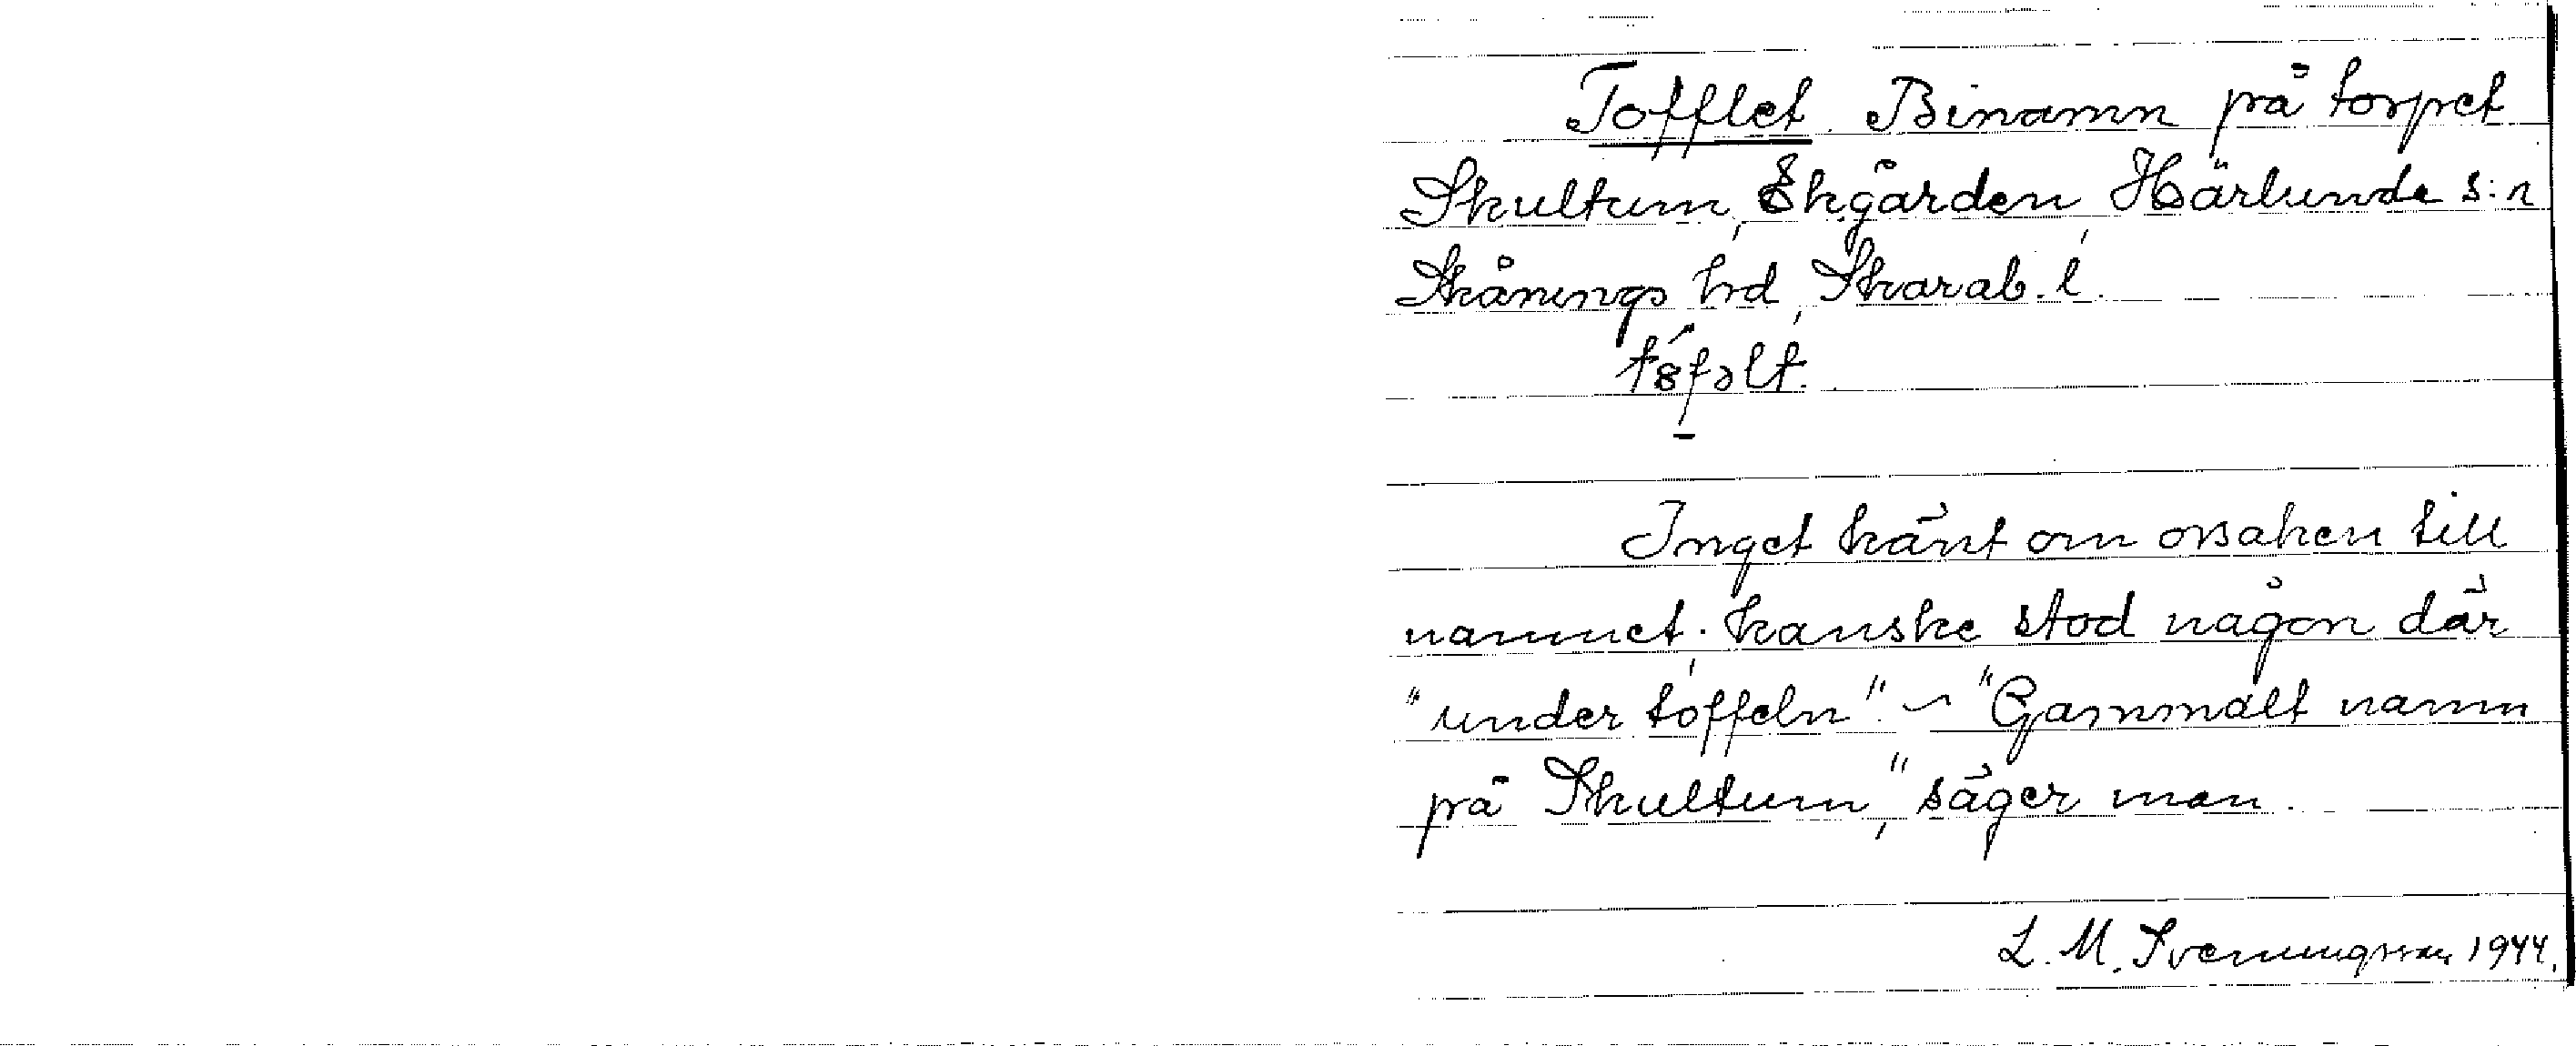 Tofflet. Binamn på torpet
Skultum, Ekgården, Härlunda s:n
Skånings hd, Skarab. l.
Inget känt om orsaken till
namnet; kanske stod någon där
"under toffeln". ~ "Gammalt namn
på Skultum", säger man.
L. M. Svenungsson 1944.